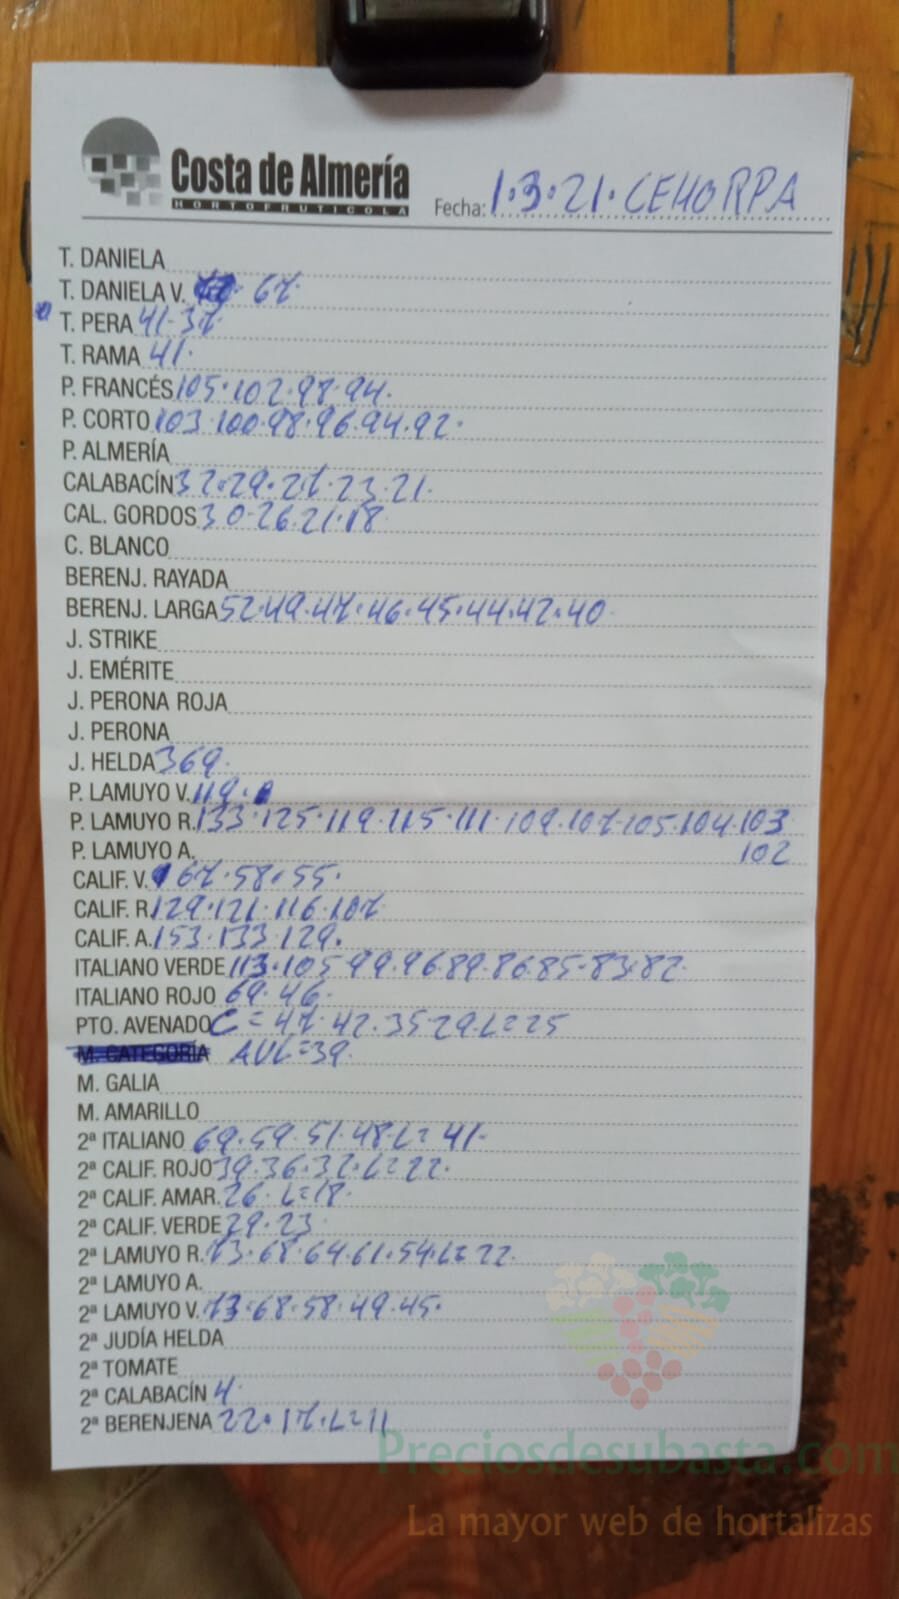 Costa de Almería
HORTOFRUTICOLA
Fecha: 1.3.21. CEHORPA
T. DANIELA
T. DANIELA V. 67.
T. PERA 41-37
T. RAMA 41.
P. FRANCÉS 105.102.98.94.
P. CORTO 103.100.98.96.94.92.
P. ALMERÍA
CALABACÍN 32.29.27.23.21.
CAL. GORDOS 30.26.21.18
C. BLANCO
BERENJ. RAYADA
BERENJ. LARGA 52.49.47.46.45.44.42.40
J. STRIKE
J. EMÉRITE
J. PERONA ROJA
J. PERONA
J. HELDA 369.
P. LAMUYO V. 119.
P. LAMUYO R. 133.125.119.115.111.109.107.105.104.103
P. LAMUYO A. 102
CALIF. V. 67.58.55.
CALIF. R. 129.121.116.107
CALIF. A. 153.133.129.
ITALIANO VERDE 113.105 99.96.89.86.85.83.82.
ITALIANO ROJO 69.46.
PTO. AVENADO C=47.42.35.29.L=25
M. CATEGORÍA AVL=39.
M. GALIA
M. AMARILLO
2ª ITALIANO 69.59.51.48.L=41-
2ª CALIF. ROJO 39.36.32.L=22.
2ª CALIF. AMAR. 26. L=18.
2ª CALIF. VERDE 29.23.
2ª LAMUYO R. 73.68.64.61.54.L=22.
2ª LAMUYO A.
2ª LAMUYO V. 73.68.58.49.45.
2ª JUDÍA HELDA
2ª TOMATE
2ª CALABACÍN 4.
2ª BERENJENA 22.17.L=11
Preciosdesubasta.com
La mayor web de hortalizas